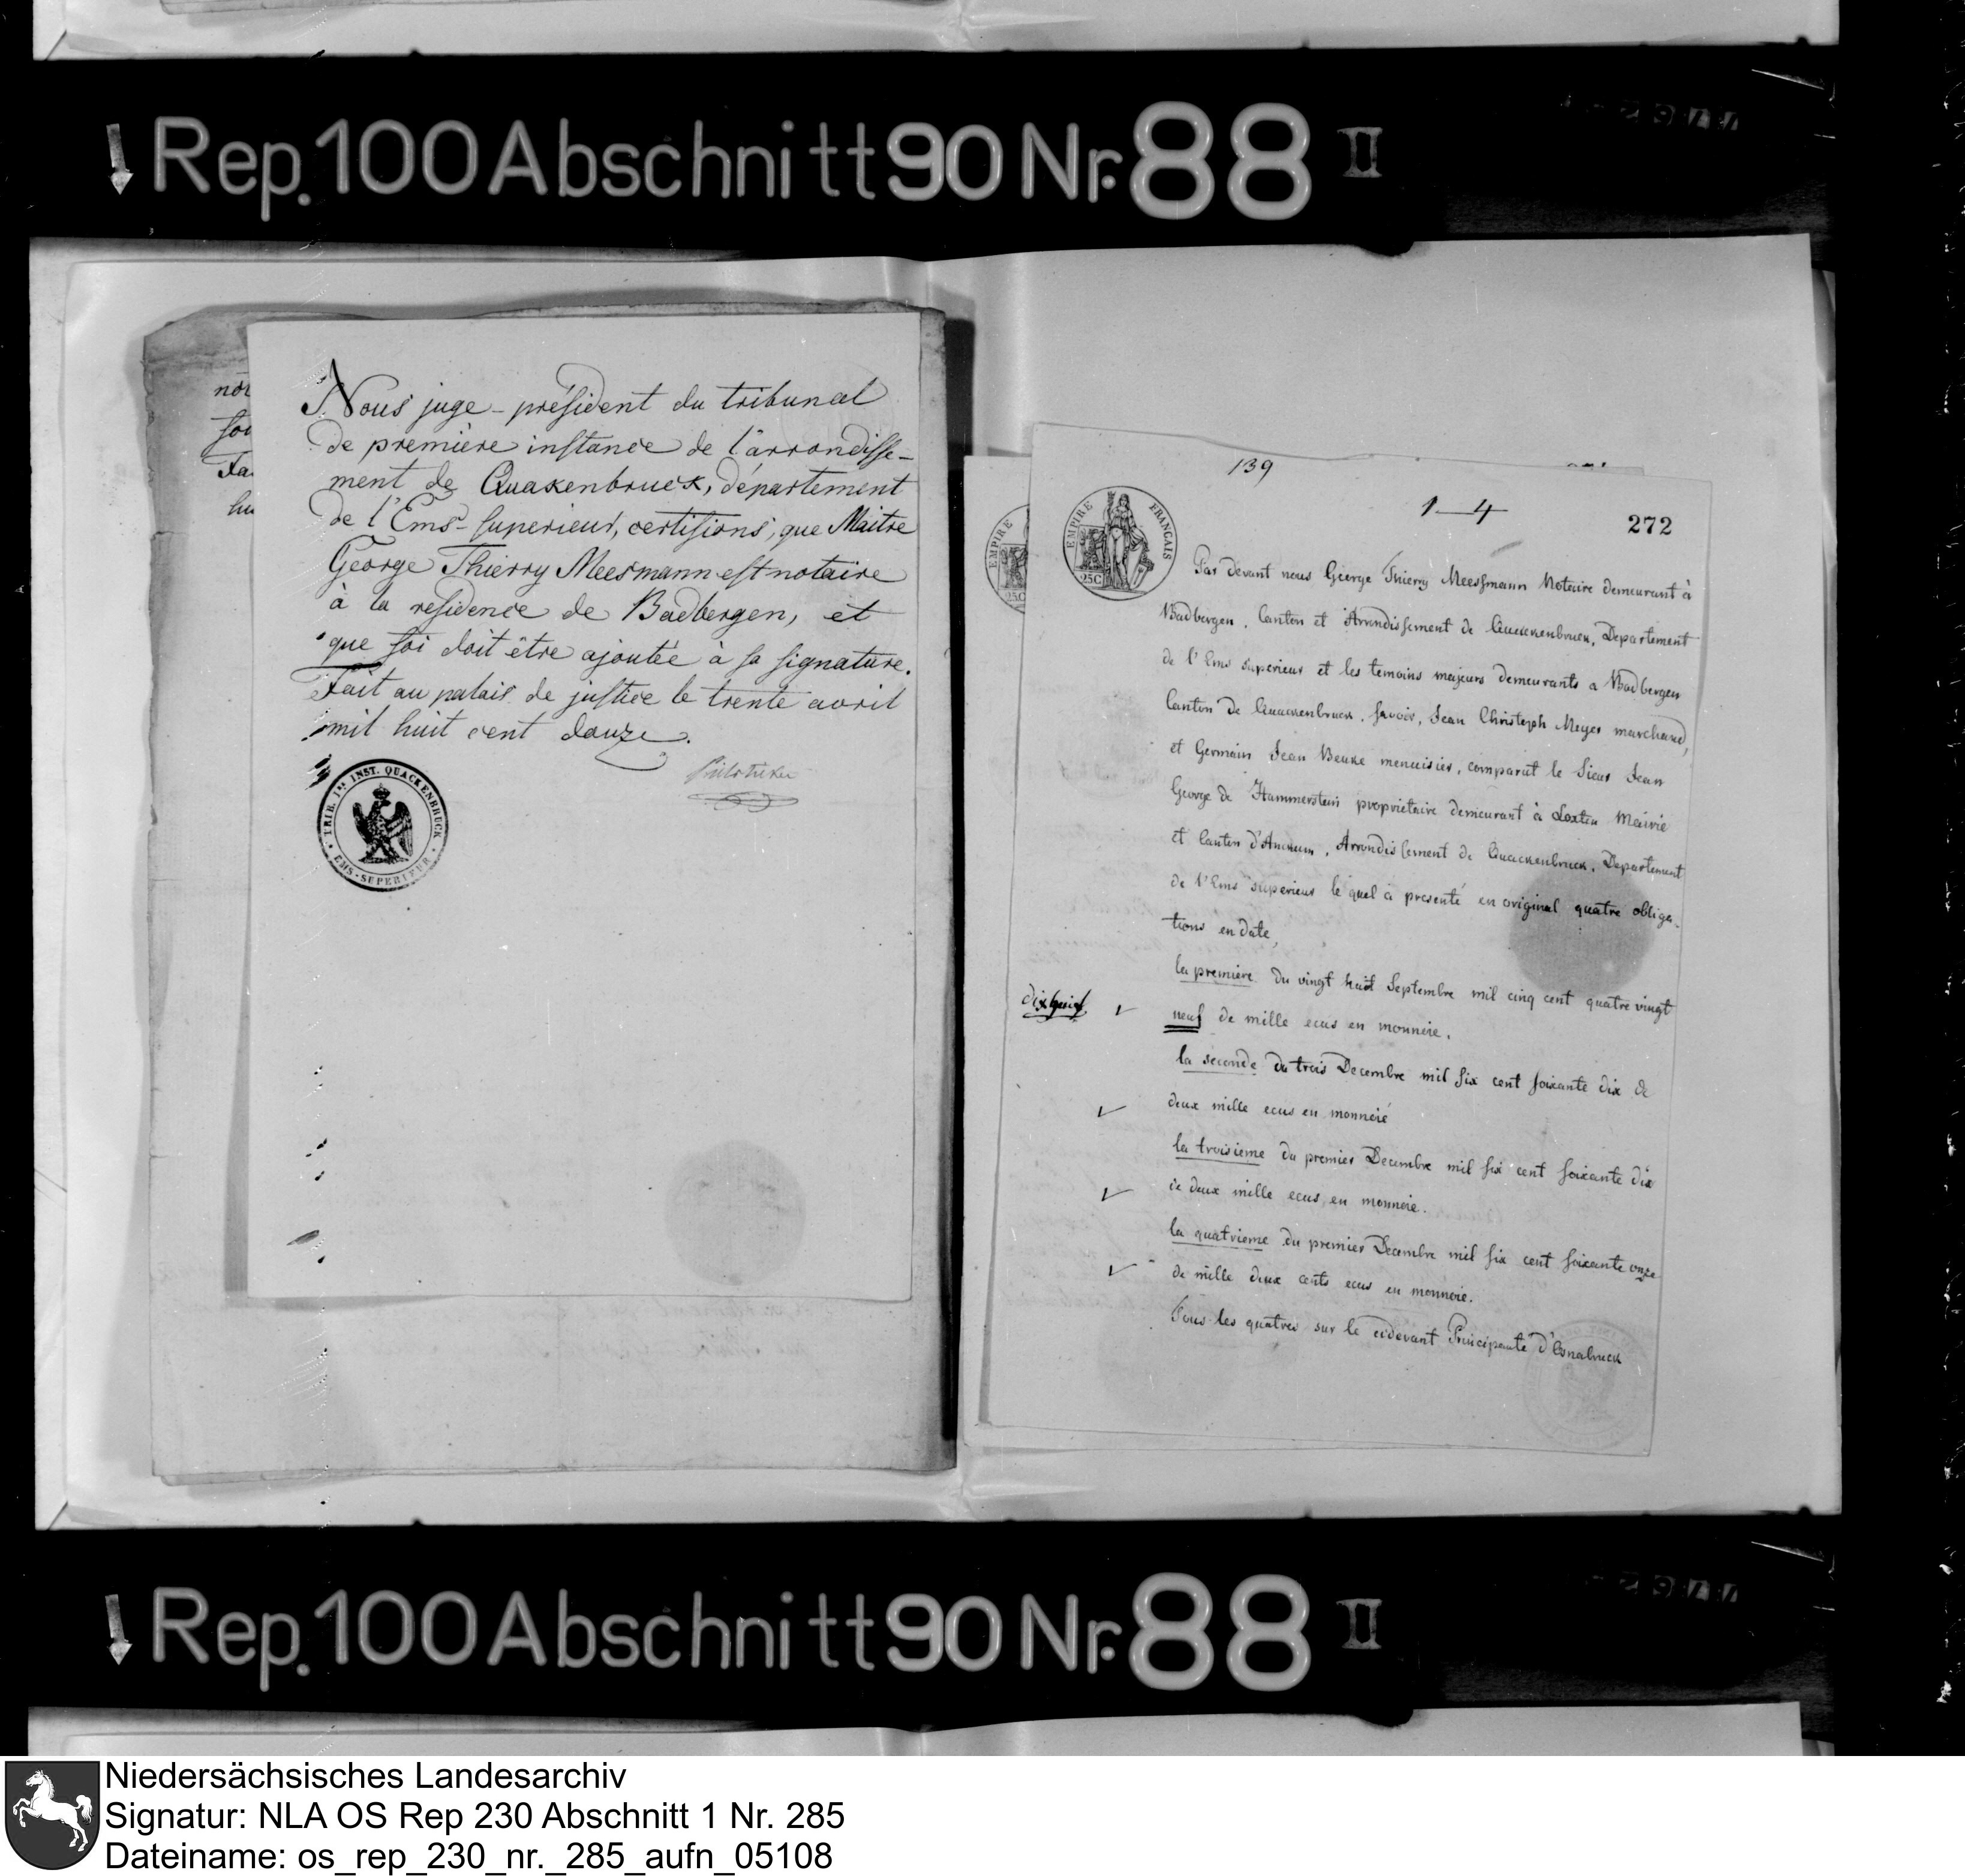 Rep. 100 Abschnitt 90 Nr. 88 II
nou
soi
Fa
hu
Nous juge-président du tribunal
de première instance de l'arrondisse-
ment de Quakenbruck, département
de l'Ems-superieur, certifions, que Maitre
George Thierry Meesmann est notaire
à la residence de Badbergen, et
que foi doit être ajoutée à sa signature.
Fait au palais de justice le trente avril
mil huit cent douze.
TRIB. 1ère INST. QUACKENBRUCK
EMS-SUPERIEUR
139
1–4
272
EMPIRE
25C
EMPIRE FRANÇAIS
25C
Par devant nous George Thierry Meessmann Notaire demeurant à
Badbergen, Canton et Arrondissement de Quackenbruck, Departement
de l'Ems superieur et les temoins majeurs demeurants a Badbergen
Canton de Quackenbruck, savoir, Jean Christoph Meyer marchand,
et Germain Jean Beuke menuisier, comparut le Sieur Jean
George de Hammerstein proprietaire demeurant à Loxten Mairie
et Canton d'Anckum, Arrondissement de Quackenbruck, Departement
de l'Ems superieur le quel a presenté en original quatre obliga-
tions en date,
la premiere du vingt huit Septembre mil cinq cent quatre vingt
neuf de mille ecus en monnoie.
la seconde du trois Decembre mil six cent soixante dix de
deux mille ecus en monnoié
la troisieme du premier Decembre mil six cent soixante dix
de deux mille ecus en monnoie.
la quatrieme du premier Decembre mil six cent soixante onze
de mille deux cents ecus en monnoie.
Tous les quatres sur le cidevant Principauté d'Osnabruck
Rep. 100 Abschnitt 90 Nr. 88 II
Niedersächsisches Landesarchiv
Signatur: NLA OS Rep 230 Abschnitt 1 Nr. 285
Dateiname: os_rep_230_nr._285_aufn_05108